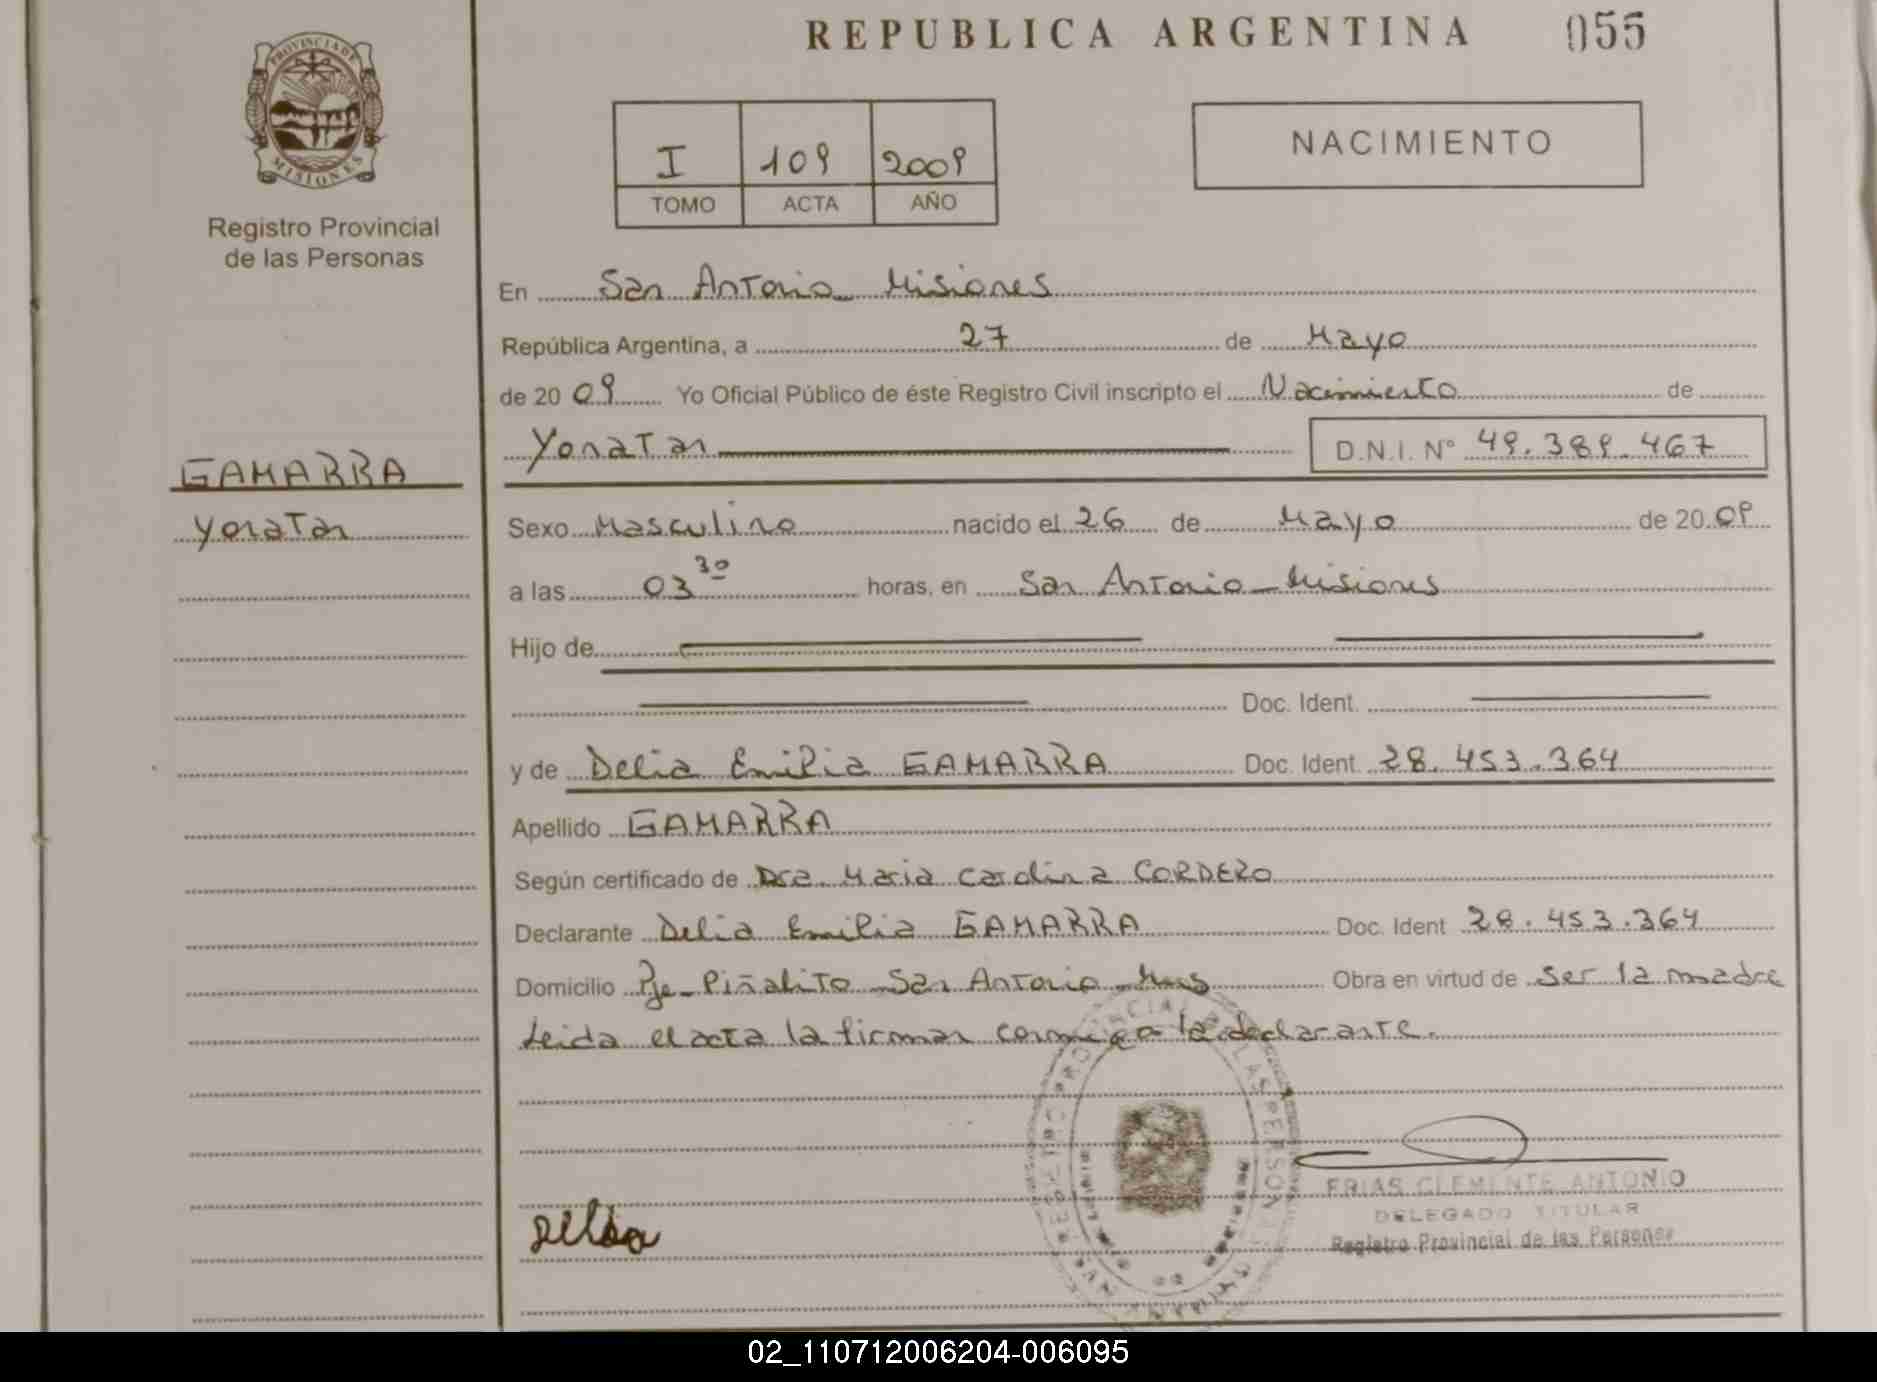 REPUBLICA ARGENTINA 055
PROVINCIA DE
MISIONES
Registro Provincial
de las Personas
I 109 2009
TOMO ACTA AÑO
NACIMIENTO
En San Antonio Misiones
República Argentina, a 27 de Mayo
de 20 09 Yo Oficial Público de éste Registro Civil inscripto el Nacimiento de
Yonatan D.N.I. N° 49.389.467
GAMARRA
Yonatan
Sexo Masculino nacido el 26 de Mayo de 20 09
a las 03 30 horas, en San Antonio - Misiones
Hijo de
Doc. Ident.
y de Delia Emilia GAMARRA Doc. Ident. 28.453.364
Apellido GAMARRA
Según certificado de Dra. Maria Carolina CORDERO
Declarante Delia Emilia GAMARRA Doc. Ident 28.453.364
Domicilio Pje - Piñalito - San Antonio - Mnes Obra en virtud de ser la madre
Leida el acta la firman conmigo la declarante.
FRIAS CLEMENTE ANTONIO
DELEGADO TITULAR
Registro Provincial de las Personas
Delia
02_110712006204-006095